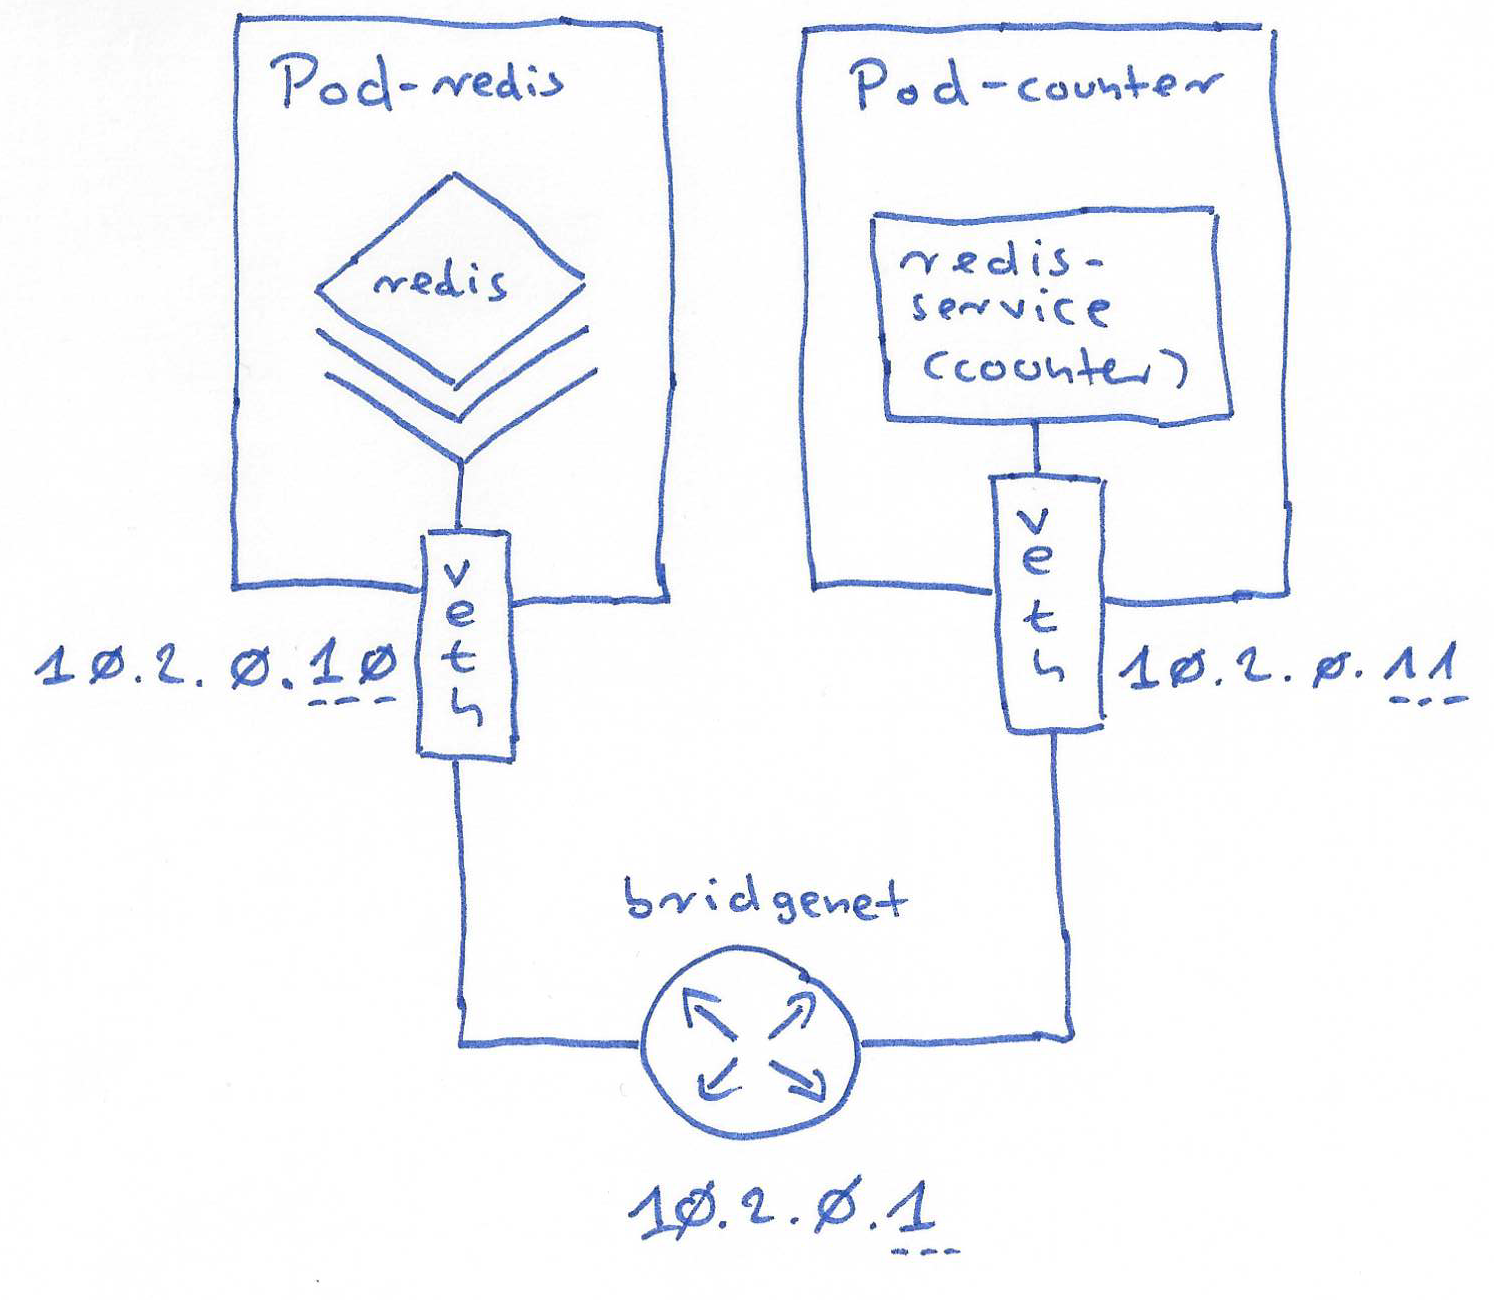 Pod-redis
redis
veth
10.2.0.10
Pod-counter
redis-
service
(counter)
veth
10.2.0.11
bridgenet
10.2.0.1